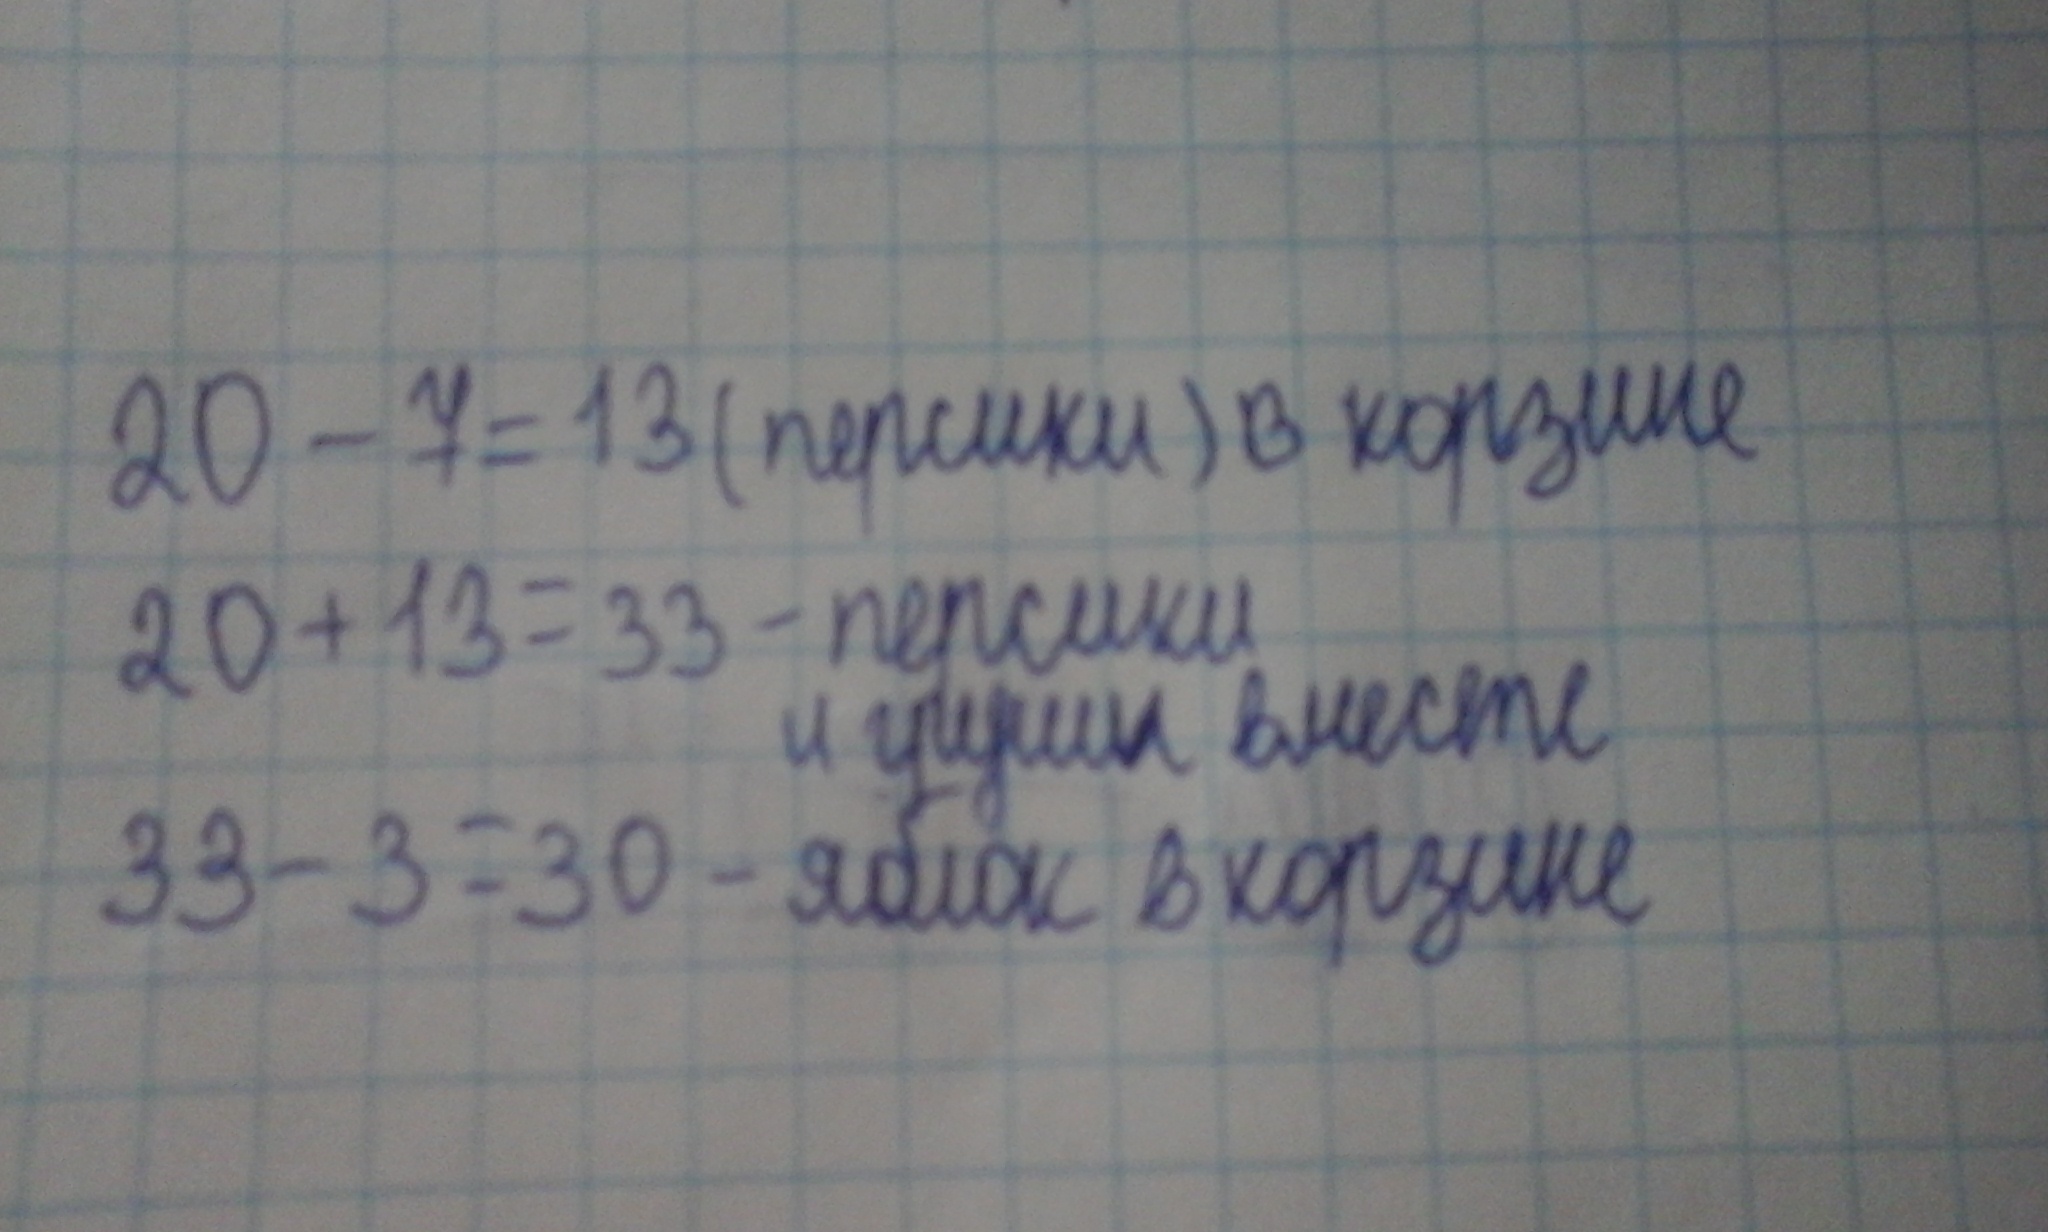 20 - 7 = 13 (персики) в корзине
20 + 13 = 33 - персики
и груши вместе
33 - 3 = 30 - яблок в корзине